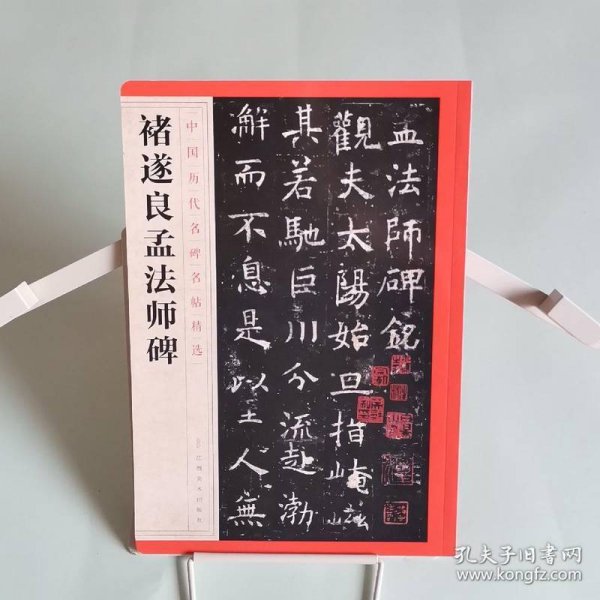 褚遂良孟法师碑
中国历代名碑名帖精选
江西美术出版社
孟法师碑铭
觀夫太陽始旦指崦嵫
其若馳巨川分流赴渤
澥而不息是以至人無
孔夫子旧书网
www.kongfz.com